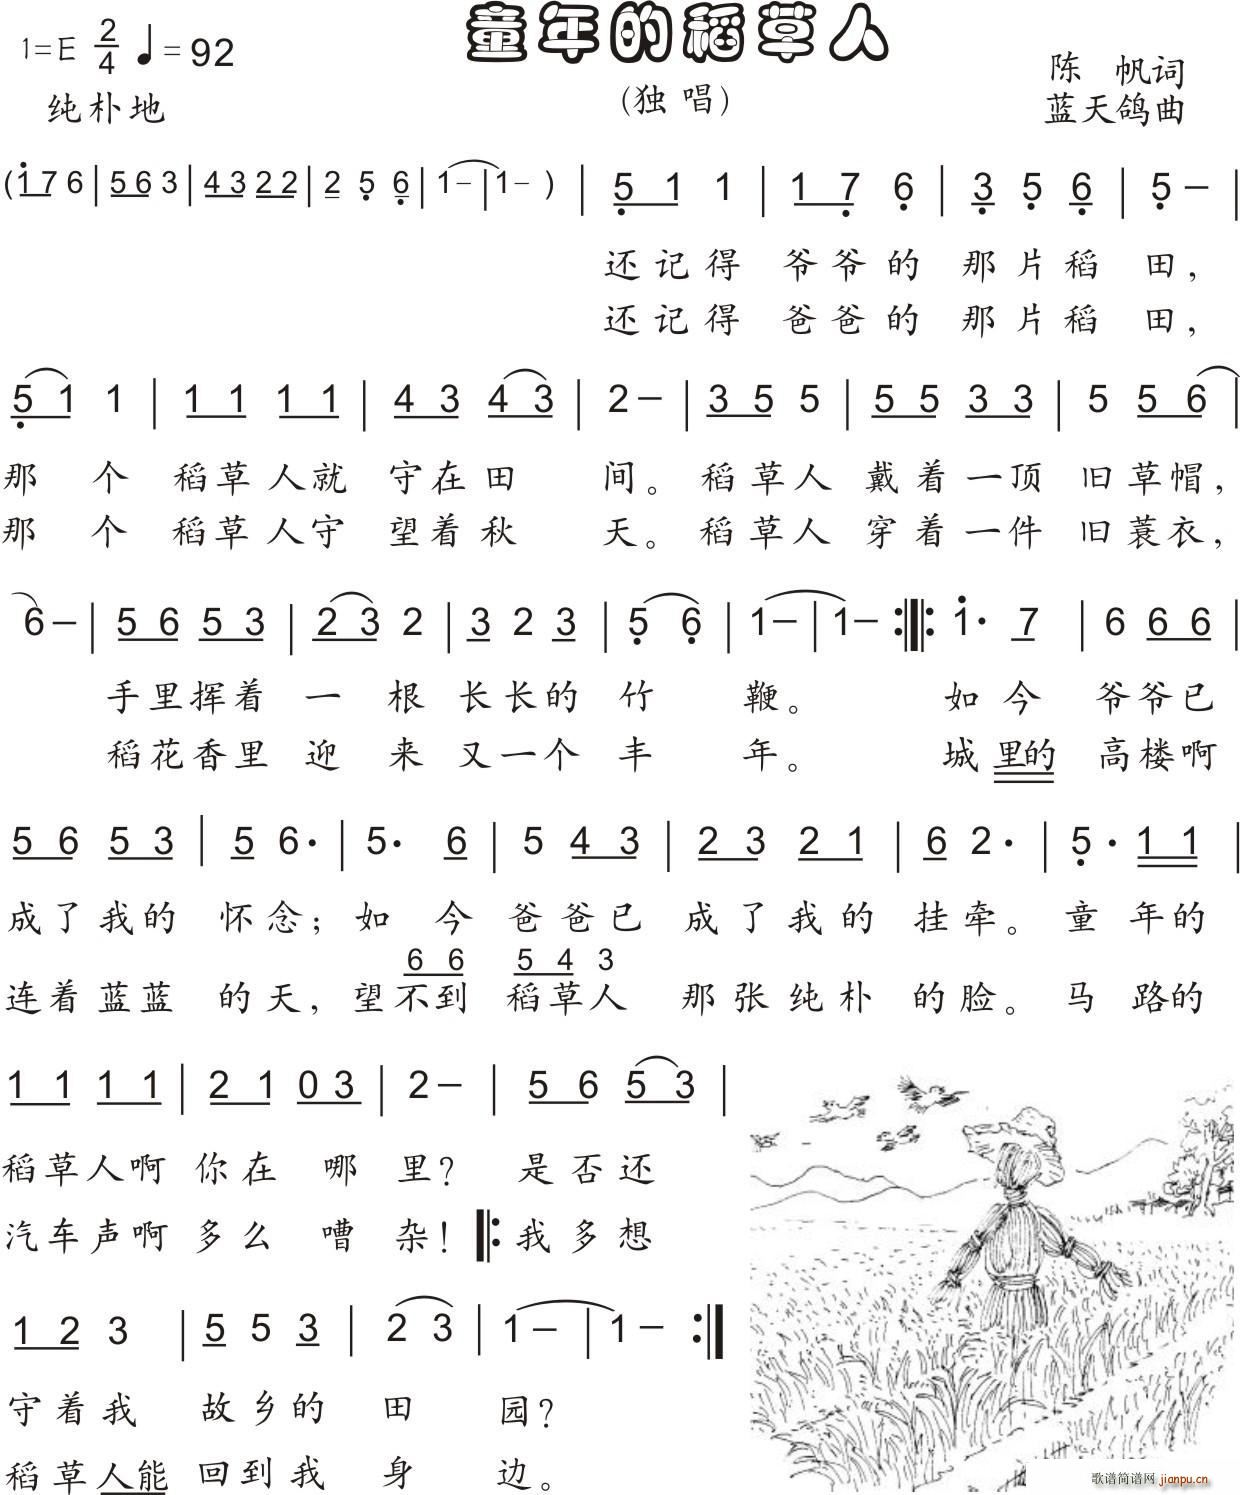 童年的稻草人
1=E 2/4 ♩=92
(独唱)
陈 帆词
纯朴地
蓝天鸽曲
(1 7 6 | 5 6 3 | 4 3 2 2 | 2 5 6 | 1 – | 1 – ) | 5 1 1 | 1 7 6 | 3 5 6 | 5 – |
还记得 爷爷的 那片稻 田,
还记得 爸爸的 那片稻 田,
5 1 1 | 1 1 1 1 | 4 3 4 3 | 2 – | 3 5 5 | 5 5 3 3 | 5 5 6 |
那 个 稻草人就 守在田 间。稻草人 戴着一顶 旧草帽,
那 个 稻草人守 望着秋 天。稻草人 穿着一件 旧蓑衣,
6 – | 5 6 5 3 | 2 3 2 | 3 2 3 | 5 6 | 1 – | 1 – :‖: 1· 7 | 6 6 6 |
手里挥着 一 根 长长的 竹 鞭。 如今 爷爷已
稻花香里 迎 来 又一个 丰 年。 城里的 高楼啊
5 6 5 3 | 5 6· | 5· 6 | 5 4 3 | 2 3 2 1 | 6 2· | 5· 1 1 |
成了我的 怀念; 如 今 爸爸已 成了我的 挂牵。童 年的
6 6 5 4 3
连着蓝蓝 的天, 望不到 稻草人 那张纯朴 的脸。马 路的
1 1 1 1 | 2 1 0 3 | 2 – | 5 6 5 3 |
稻草人啊 你在 哪 里? 是否还
汽车声啊 多么 嘈 杂! ‖: 我多想
1 2 3 | 5 5 3 | 2 3 | 1 – | 1 – :‖
守着我 故乡的 田 园?
稻草人能 回到我 身 边。
歌谱简谱网 jianpu.cn